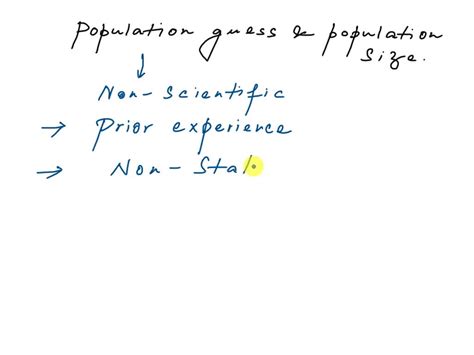 Population guess & population
size.
↓
Non-scientific
→ Prior experience
→ Non-Stat